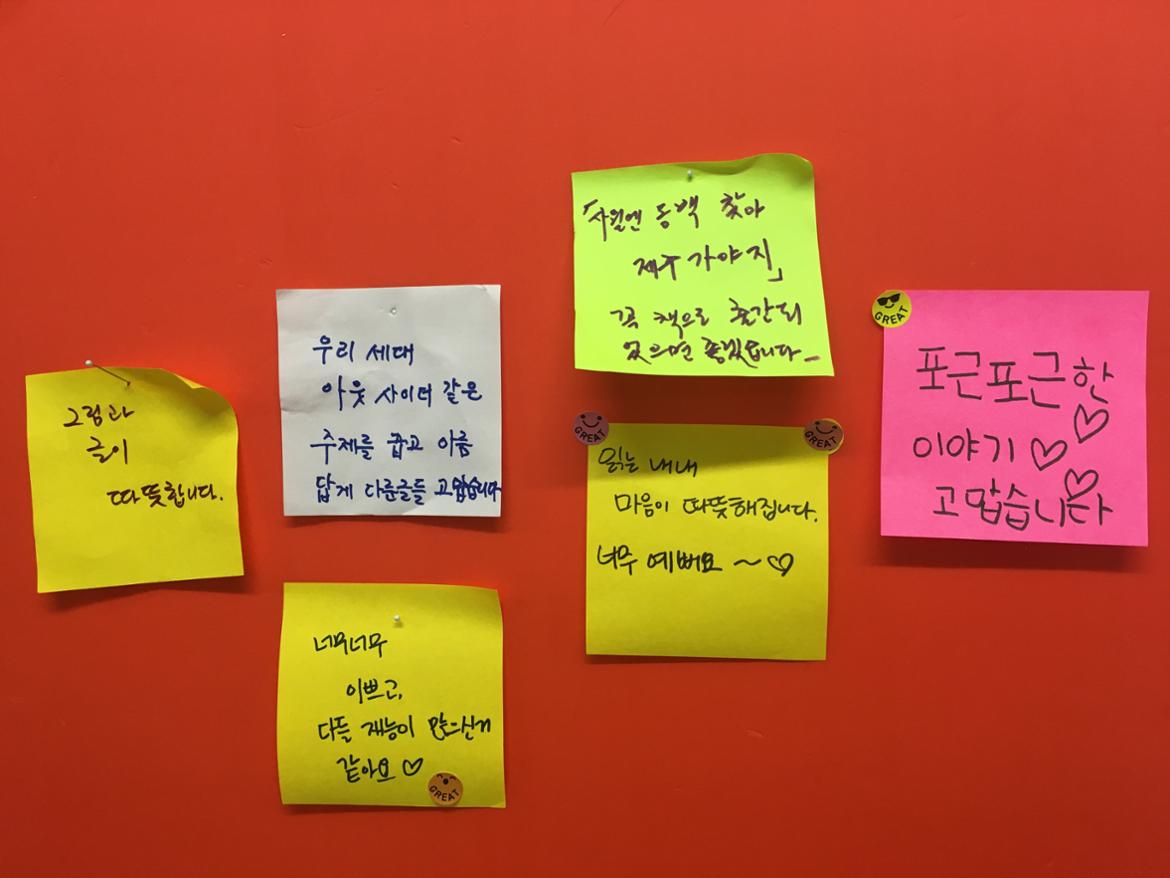 그림과
글이
따뜻합니다.
우리 세대
아웃사이더 같은
주제를 꼽고 아름
답게 다룬글들 고맙습니다
너무너무
이쁘고,
다들 재능이 많으신거
같아요♡
GREAT
「사월엔 동백 찾아
제주 가야지」
꼭 책으로 출간되
었으면 좋겠습니다_
GREAT
GREAT
읽는 내내
마음이 따뜻해집니다.
너무 예뻐요 ~♡
GREAT
포근포근한
이야기♡♡
고맙습니다♡